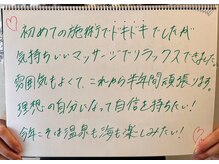 初めての施術でドキドキでしたが
気持ちいいマッサージでリラックスできました。
雰囲気もよくて、これから半年間頑張ります。
理想の自分になって自信を持ちたい!
今年こそは温泉も海も楽しみたい!